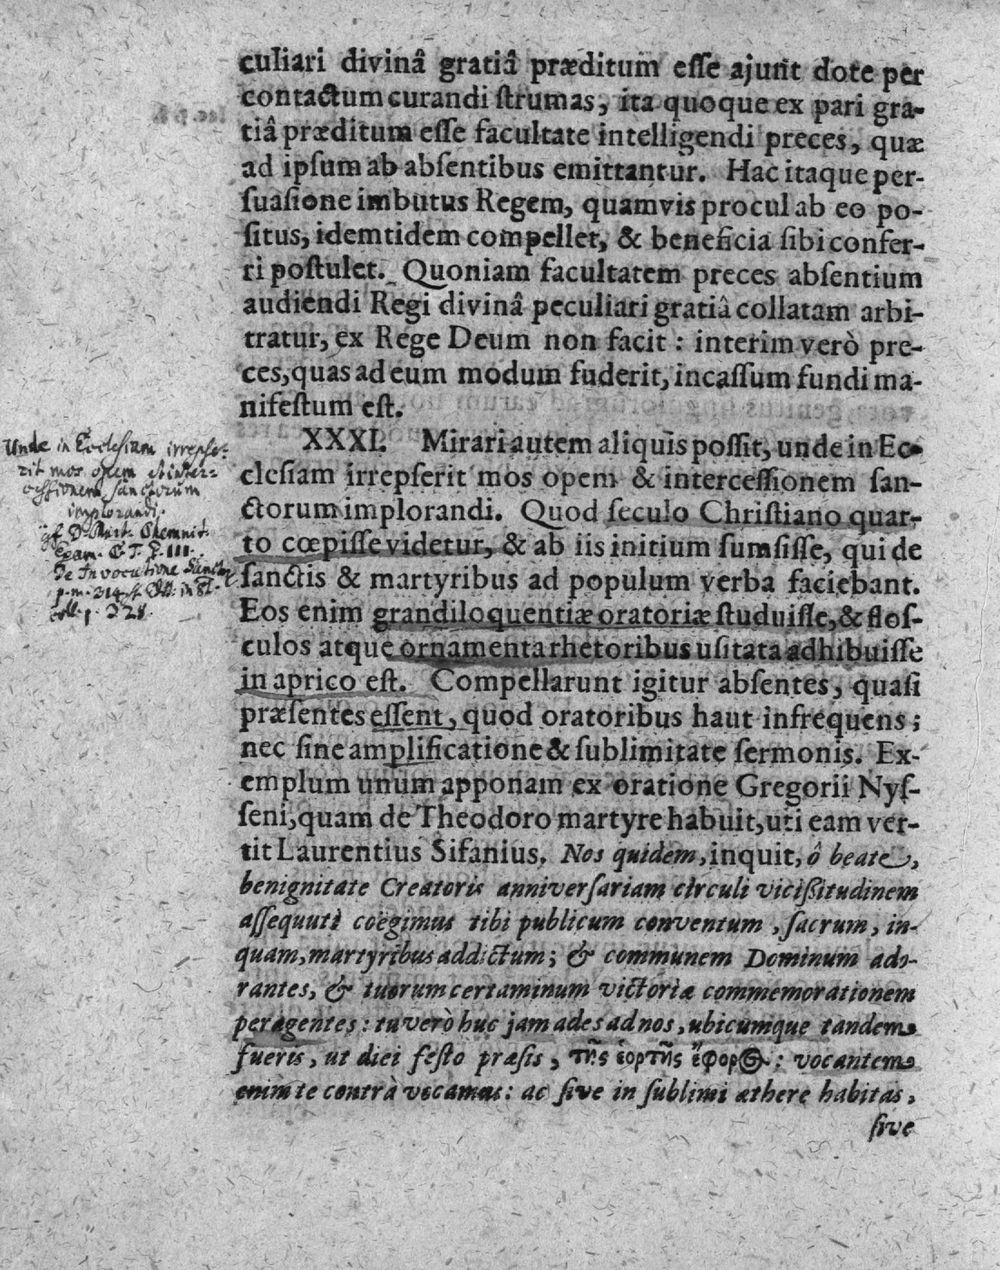 culiari divinâ gratiâ præditum esse ajunt dote per
contactum curandi strumas, ita quoque ex pari gra-
tiâ præditum esse facultate intelligendi preces, quæ
ad ipsum ab absentibus emittantur. Hac itaque per-
suasione imbutus Regem, quamvis procul ab eo po-
situs, idemtidem compellet, & beneficia sibi confer-
ri postulet. Quoniam facultatem preces absentium
audiendi Regi divinâ peculiari gratiâ collatam arbi-
tratur, ex Rege Deum non facit: interim verò pre-
ces, quas ad eum modum fuderit, incassum fundi ma-
nifestum est.
XXXI. Mirari autem aliquis possit, unde in Ec-
clesiam irrepserit mos opem & intercessionem san-
ctorum implorandi. Quod seculo Christiano quar-
to cœpisse videtur, & ab iis initium sumsisse, qui de
sanctis & martyribus ad populum verba faciebant.
Eos enim grandiloquentiæ oratoriæ studuisse, & flos-
culos atque ornamenta rhetoribus usitata adhibuisse
in aprico est. Compellarunt igitur absentes, quasi
præsentes essent, quod oratoribus haut infrequens;
nec sine amplificatione & sublimitate sermonis. Ex-
emplum unum apponam ex oratione Gregorii Nys-
seni, quam de Theodoro martyre habuit, uti eam ver-
tit Laurentius Sifanius. Nos quidem, inquit, ô beate,
benignitate Creatoris anniversariam circuli vicißitudinem
assequuti coëgimus tibi publicum conventum, sacrum, in-
quam, martyribus addictum; & communem Dominum ado-
rantes, & tuorum certaminum victoriæ commemorationem
peragentes: tu verò huc jam ades ad nos, ubicumque tandem
fueris, ut diei festo præsis, τῆς ἑορτῆς ἔφορος: vocantem
enim te contrà vocamus: ac sive in sublimi æthere habitas,
sive
Unde in Ecclesiam irrepse-
rit mos opem et inter-
cessionem sanctorum
implorandi.
D. Mart. Chemnit.
Exam. C. T. P. III.
De Invocatione Sanctor.
p. m. 214.
p. 228.